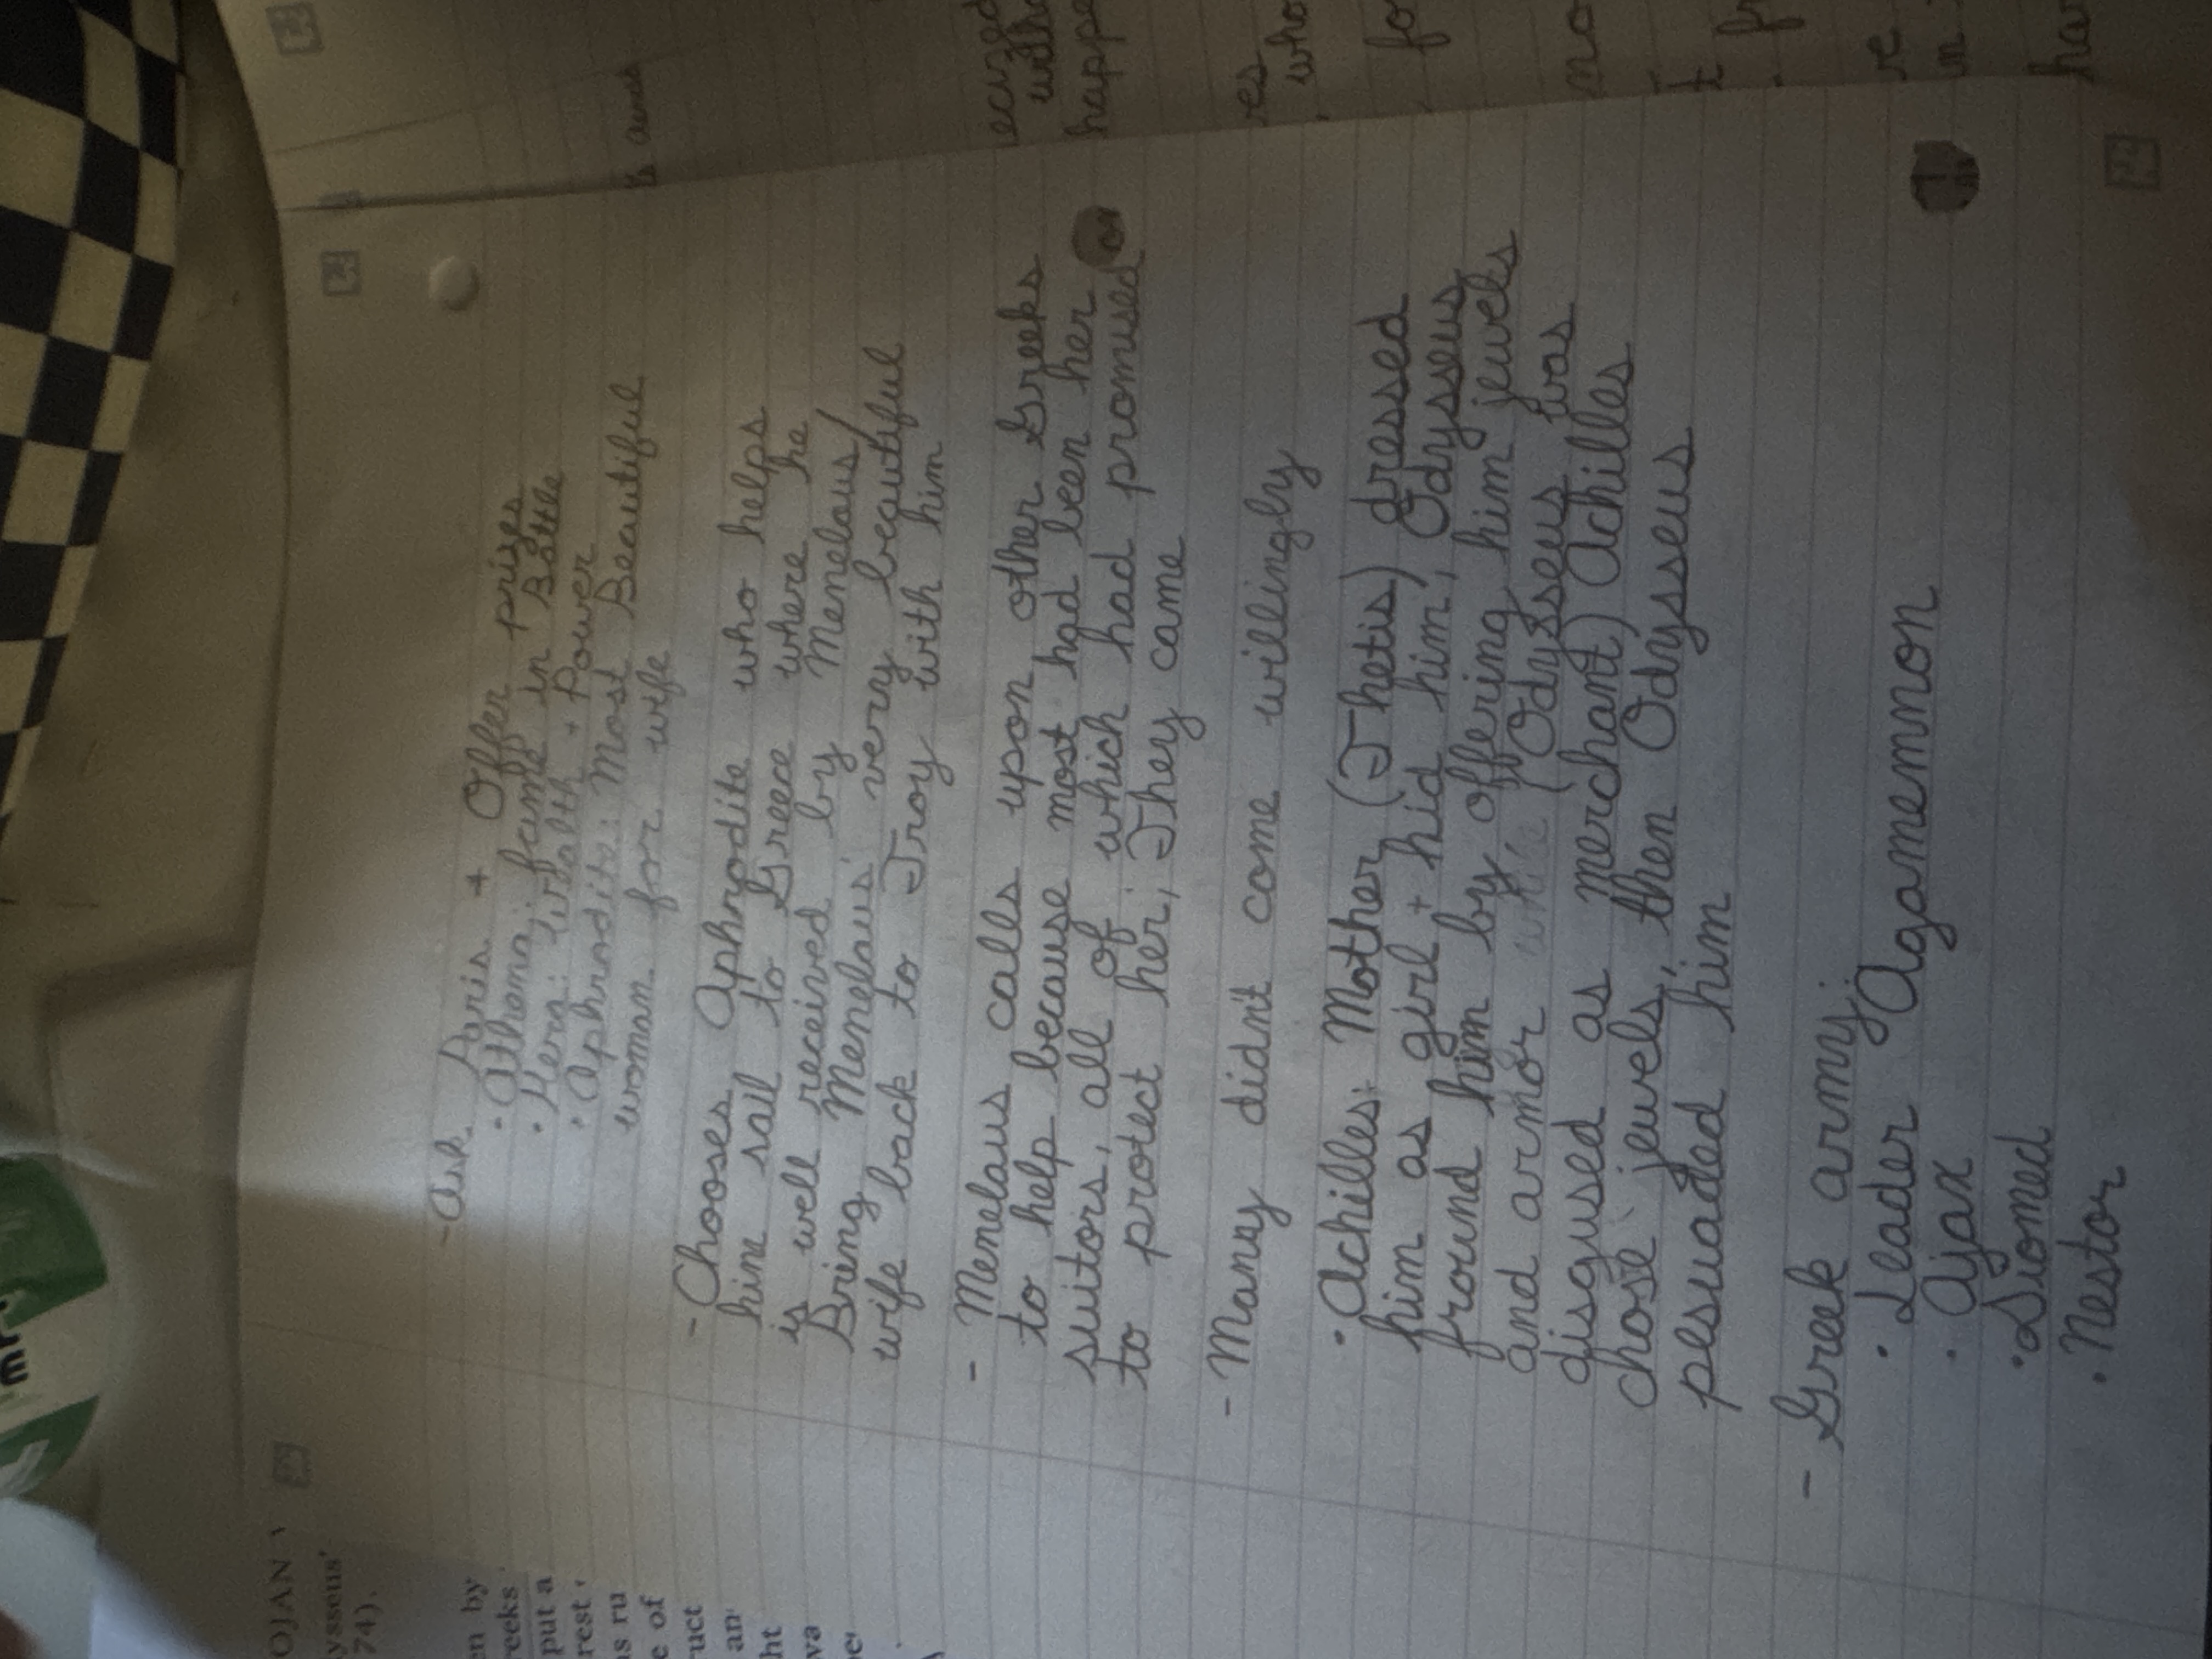 - Ask Paris + Offer prizes
· Athena: fame in Battle
· Hera: Wealth + Power
· Aphrodite: Most Beautiful
woman for wife
- Chooses Aphrodite who helps
him sail to Greece where he
is well received by Menelaus/
Bring Menelaus' very beautiful
wife back to Troy with him
- Menelaus calls upon other Greeks
to help because most had been her
suitors, all of which had promised
to protect her; They came
- Many didn't come willingly
· Achilles: Mother (Thetis) dressed
him as girl + hid him; Odysseus
found him by offering him jewels
and armor (Odysseus was
disgused as merchant) Achilles
chose jewels, then Odysseus
pesuaded him
- Greek army:
· Leader Agamemnon
· Ajax
· Diomed
· Nestor
OJAN
ysseus'
74).
en by
reeks
put a
rest
s ru
e of
ruct
an
ht
va